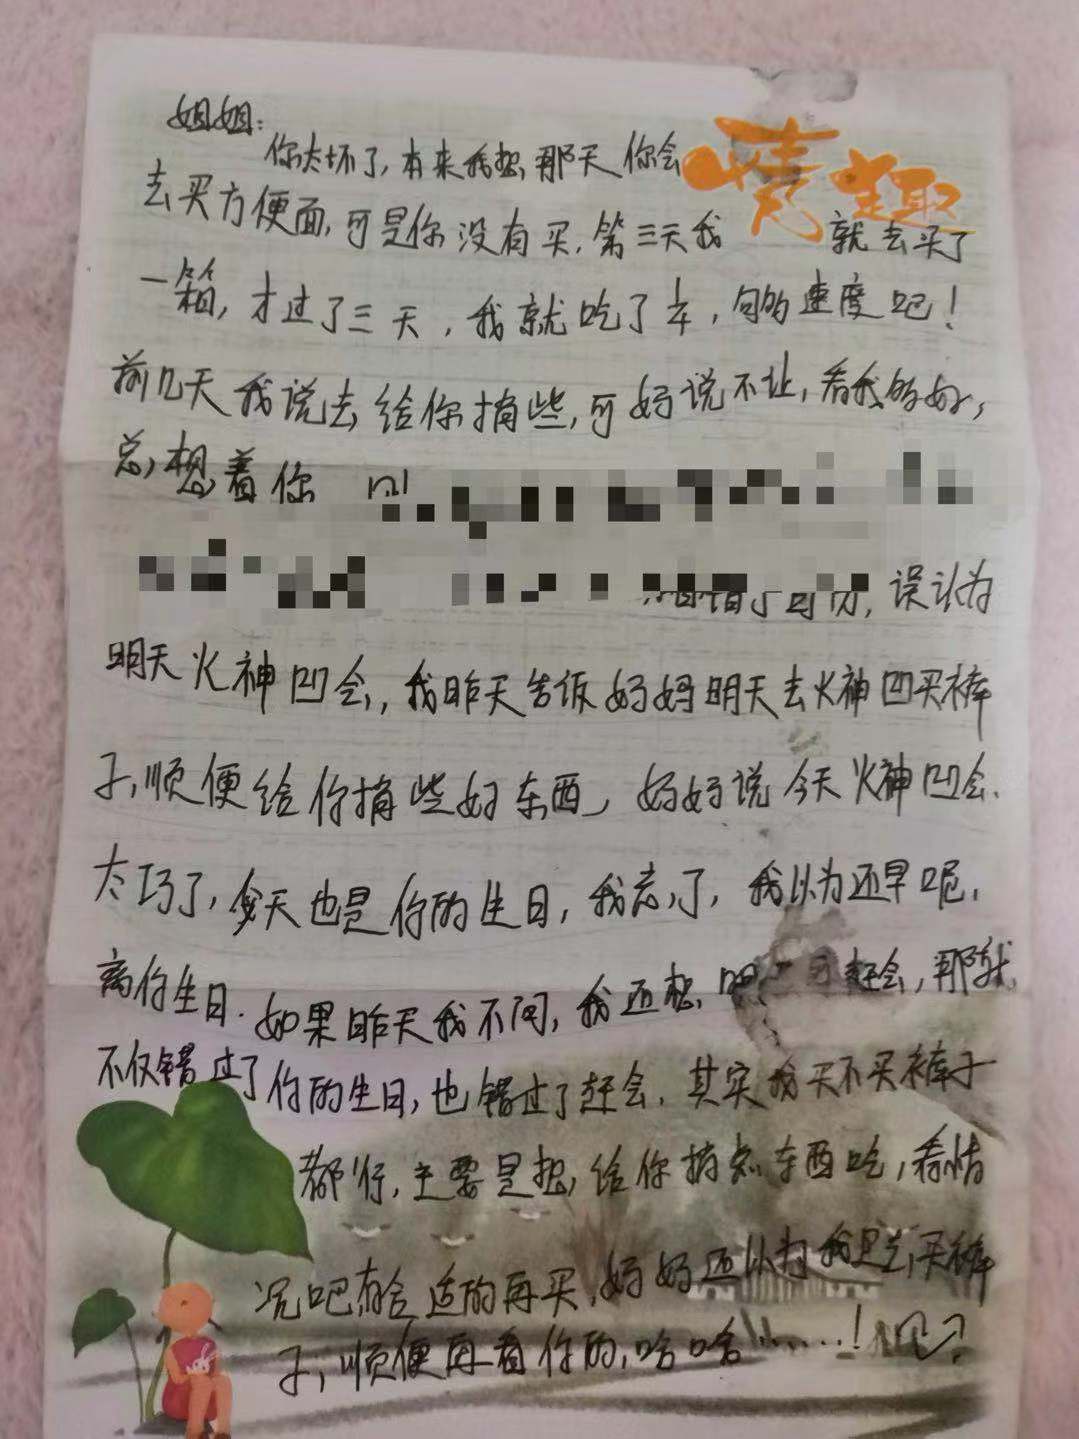 姐姐:
你太坏了,本来我想,那天你会
情趣
去买方便面,可是你没有买.第三天我 就去买了
一箱,才过了三天,我就吃了半,的速度吧!
前几天我说去给你捎些,可妈说不让,看我多好,
总想着你
误认为
明天火神凹会,我昨天告饭妈妈明天去火神凹买裤
子,顺便给你捎些好东西,妈妈说今天火神凹会.
太巧了,今天也是你的生日,我忘了,我以为还早呢,
离你生日.如果昨天我不问,我还想 赶会,那就
不仅错过了你的生日,也错过了赶会.其实我买不买裤子
都行,主要是想给你捎点东西吃,看情
况吧有合适的再买,妈妈还以为我是去买裤
子,顺便再看你的,哈哈……!